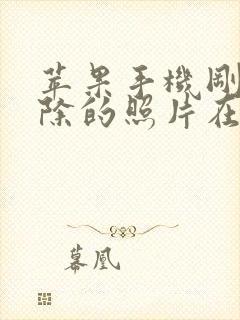 苹果手機剛
除的照片在
幕凰